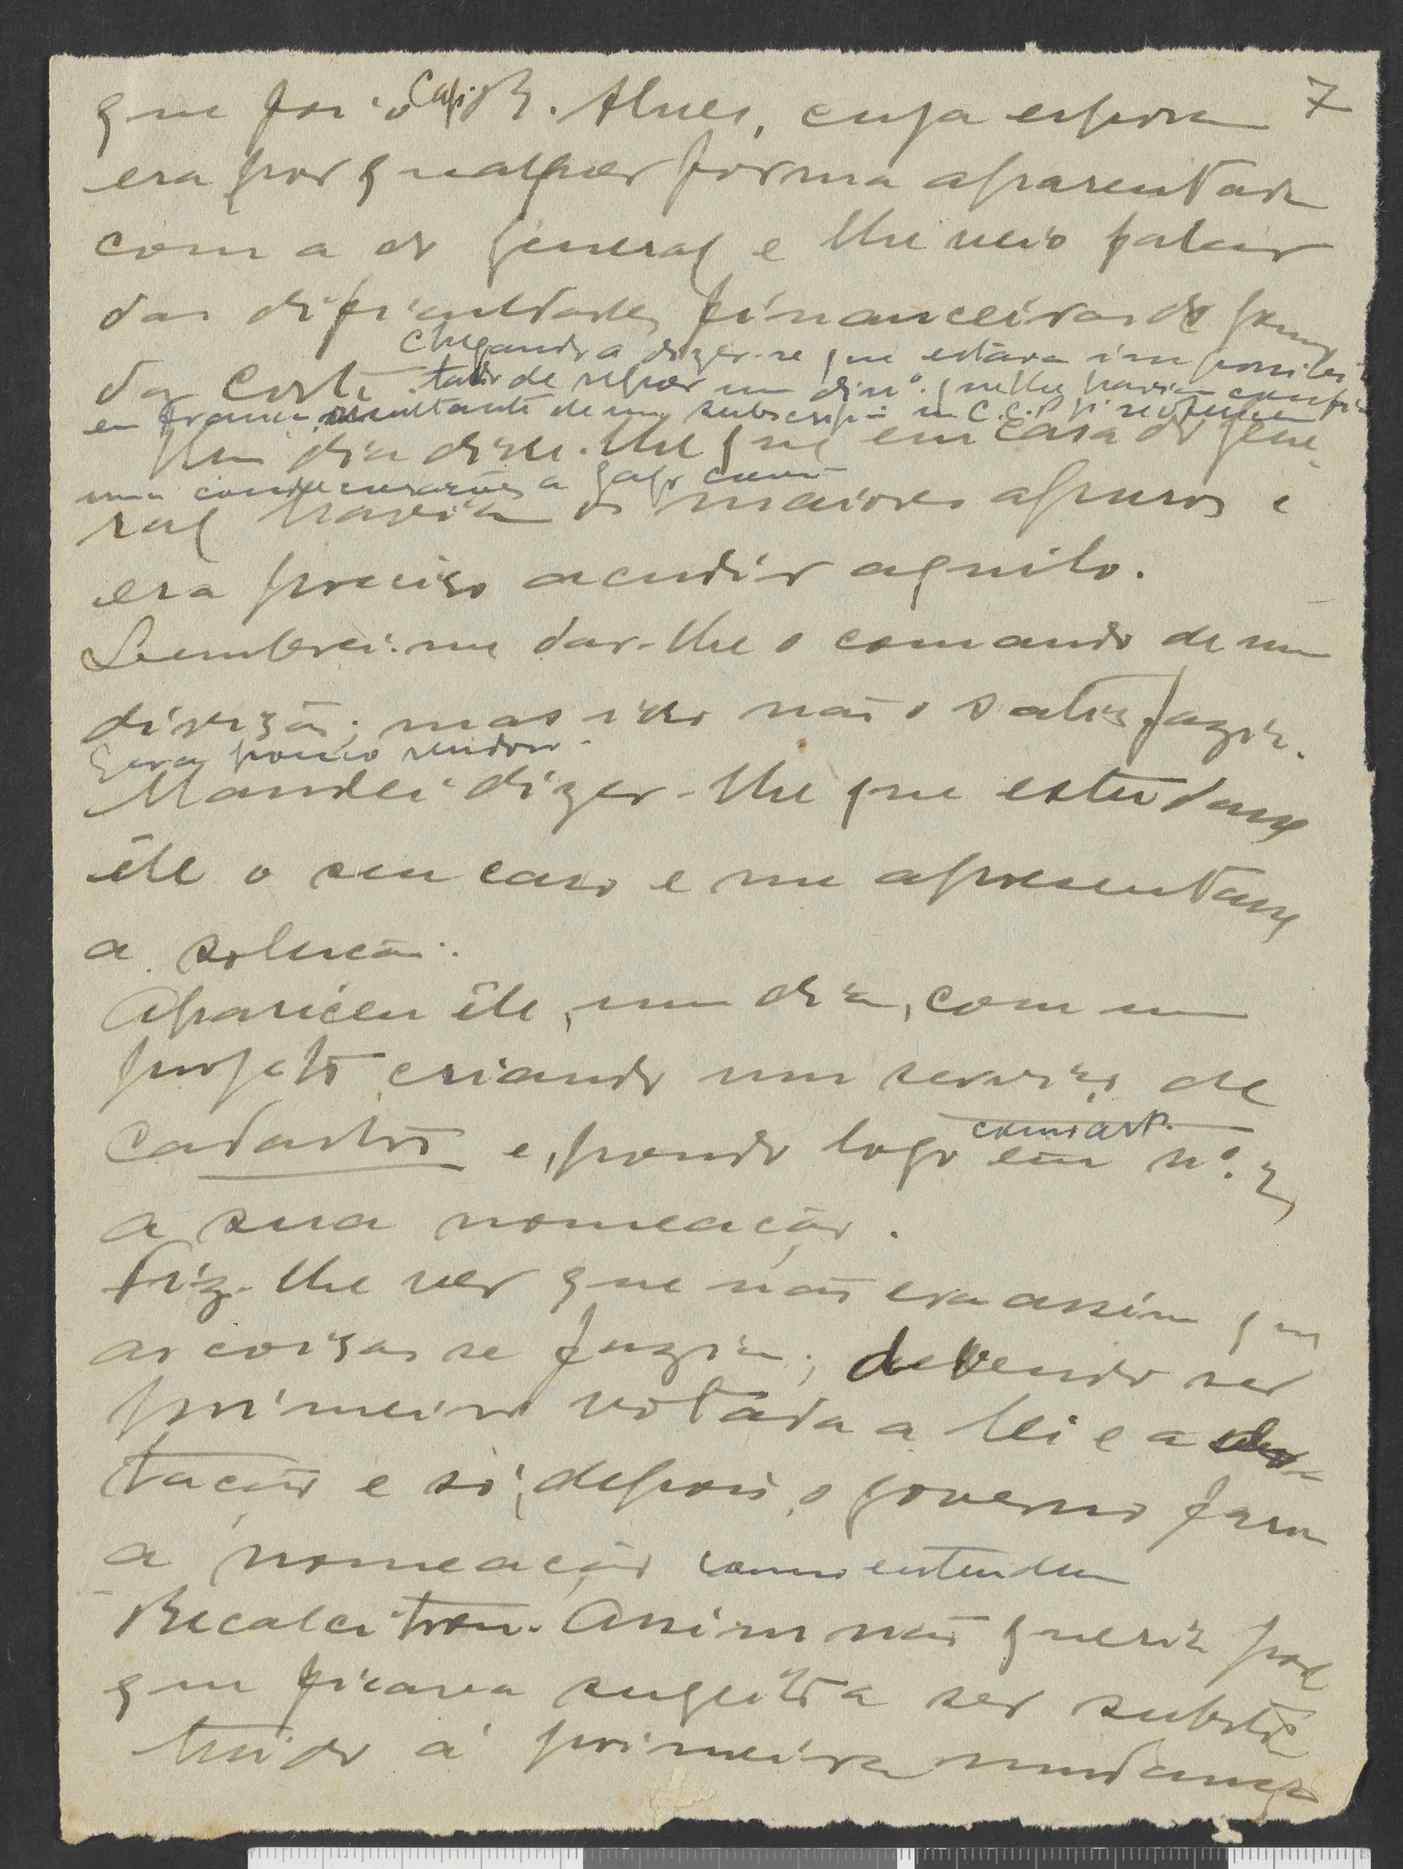 7
que foi o Cap. R. Alves, cuja esposa
era por qualquer forma aparentada
com a do general e lhe veio falar
das dificuldades financeiras do Gomes
da Costa chegando a dizer-se que estava impossibi-
tado de repor um dinº. que lhe havia
em França resultante de uma subscrição
Um dia disse-lhe que em casa do gene-
umas condecorações a
ral havia os maiores apuros e
era preciso acudir aquilo.
Lembrei-me dar-lhe o comando de uma
divisão; mas isso não o satisfazia.
era pouco rendoso.
Mandei dizer-lhe que estudasse
êle o seu caso e me apresentasse
a solução.
Apareceu êle, um dia, com um
projeto criando um serviço de
Cadastro e, pondo logo em como art. nº. 2,
a sua nomeação.
Fiz-lhe ver que não era assim que
as coisas se faziam; devendo ser
primeiro votada a lei e a do-
tação e só, depois, o governo faria
a nomeação como entendesse
Recalcitrou. Assim não queria por
que ficava sugeito a ser substi
tuido á primeira mudança